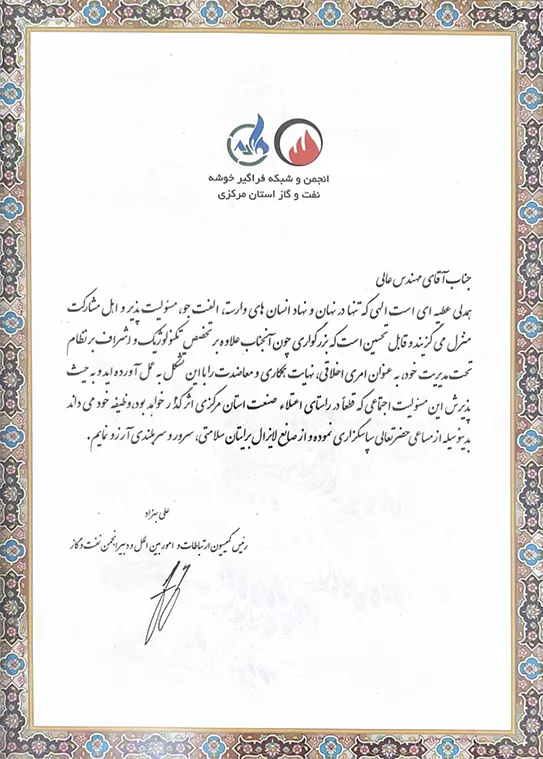 انجمن و شبکه فراگیر خوشه
نفت و گاز استان مرکزی
جناب آقای مهندس عالی
همدلی عطیه ای است الهی که تنها در نهان و نهاد انسان های وارسته، الفت جو، مسئولیت پذیر و اهل مشارکت
منزل می گزیند و قابل تحسین است که بزرگواری چون آنجناب علاوه بر تخصص تکنولوژیک و اشراف بر نظام
تحت مدیریت خود، به عنوان امری اخلاقی، نهایت همکاری و معاضدت را با این تشکل به عمل آورده اید و به حیث
پذیرش این مسئولیت اجتماعی که قطعاً در راستای اعتلاء صنعت استان مرکزی اثرگذار خواهد بود، وظیفه خود می داند
بدینوسیله از مساعی حضرتعالی سپاسگزاری نموده و از صانع لایزال برایتان سلامتی، سرور و سربلندی آرزو نمایم.
علی بهزاد
رئیس کمیسیون ارتباطات و امور بین الملل و دبیر انجمن نفت و گاز